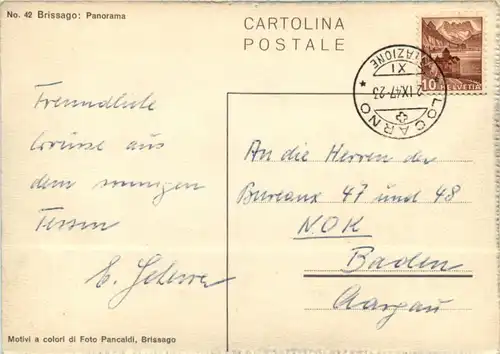 No. 42 Brissago: Panorama
CARTOLINA
POSTALE
10
HELVETIA
LOCARNO
2 IX 47-23
XI
Freundliche
Grüsse aus
dem sonnigen
Tessin
E.
An die Herren der
Bureaux 47 und 48
NOK
Baden
Aargau
Motivi a colori di Foto Pancaldi, Brissago